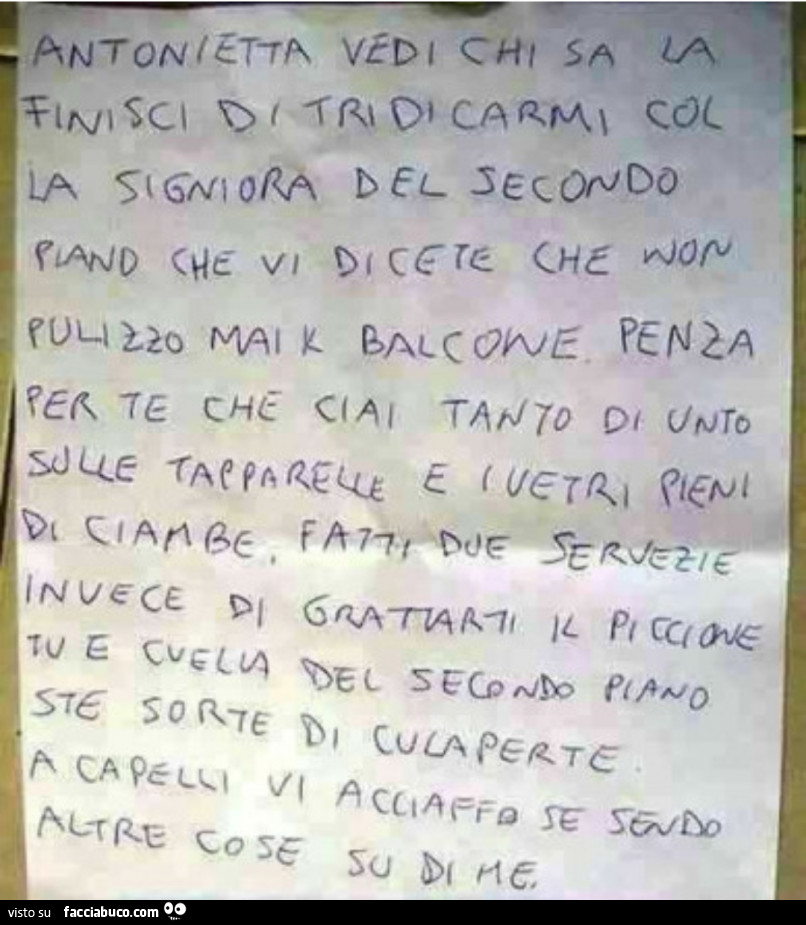 ANTONIETTA VEDI CHI SA LA
FINISCI DI TRIDICARMI COL
LA SIGNIORA DEL SECONDO
PIANO CHE VI DICETE CHE NON
PULIZZO MAI K BALCONE. PENZA
PER TE CHE CIAI TANTO DI UNTO
SULLE TAPPARELLE E I VETRI PIENI
DI CIAMBE. FATTI DUE SERVEZIE
INVECE DI GRATTARTI IL PICCIONE
TU E CUELLA DEL SECONDO PIANO
STE SORTE DI CULAPERTE.
A CAPELLI VI ACCIAFFO SE SENDO
ALTRE COSE SU DI ME.
visto su facciabuco.com